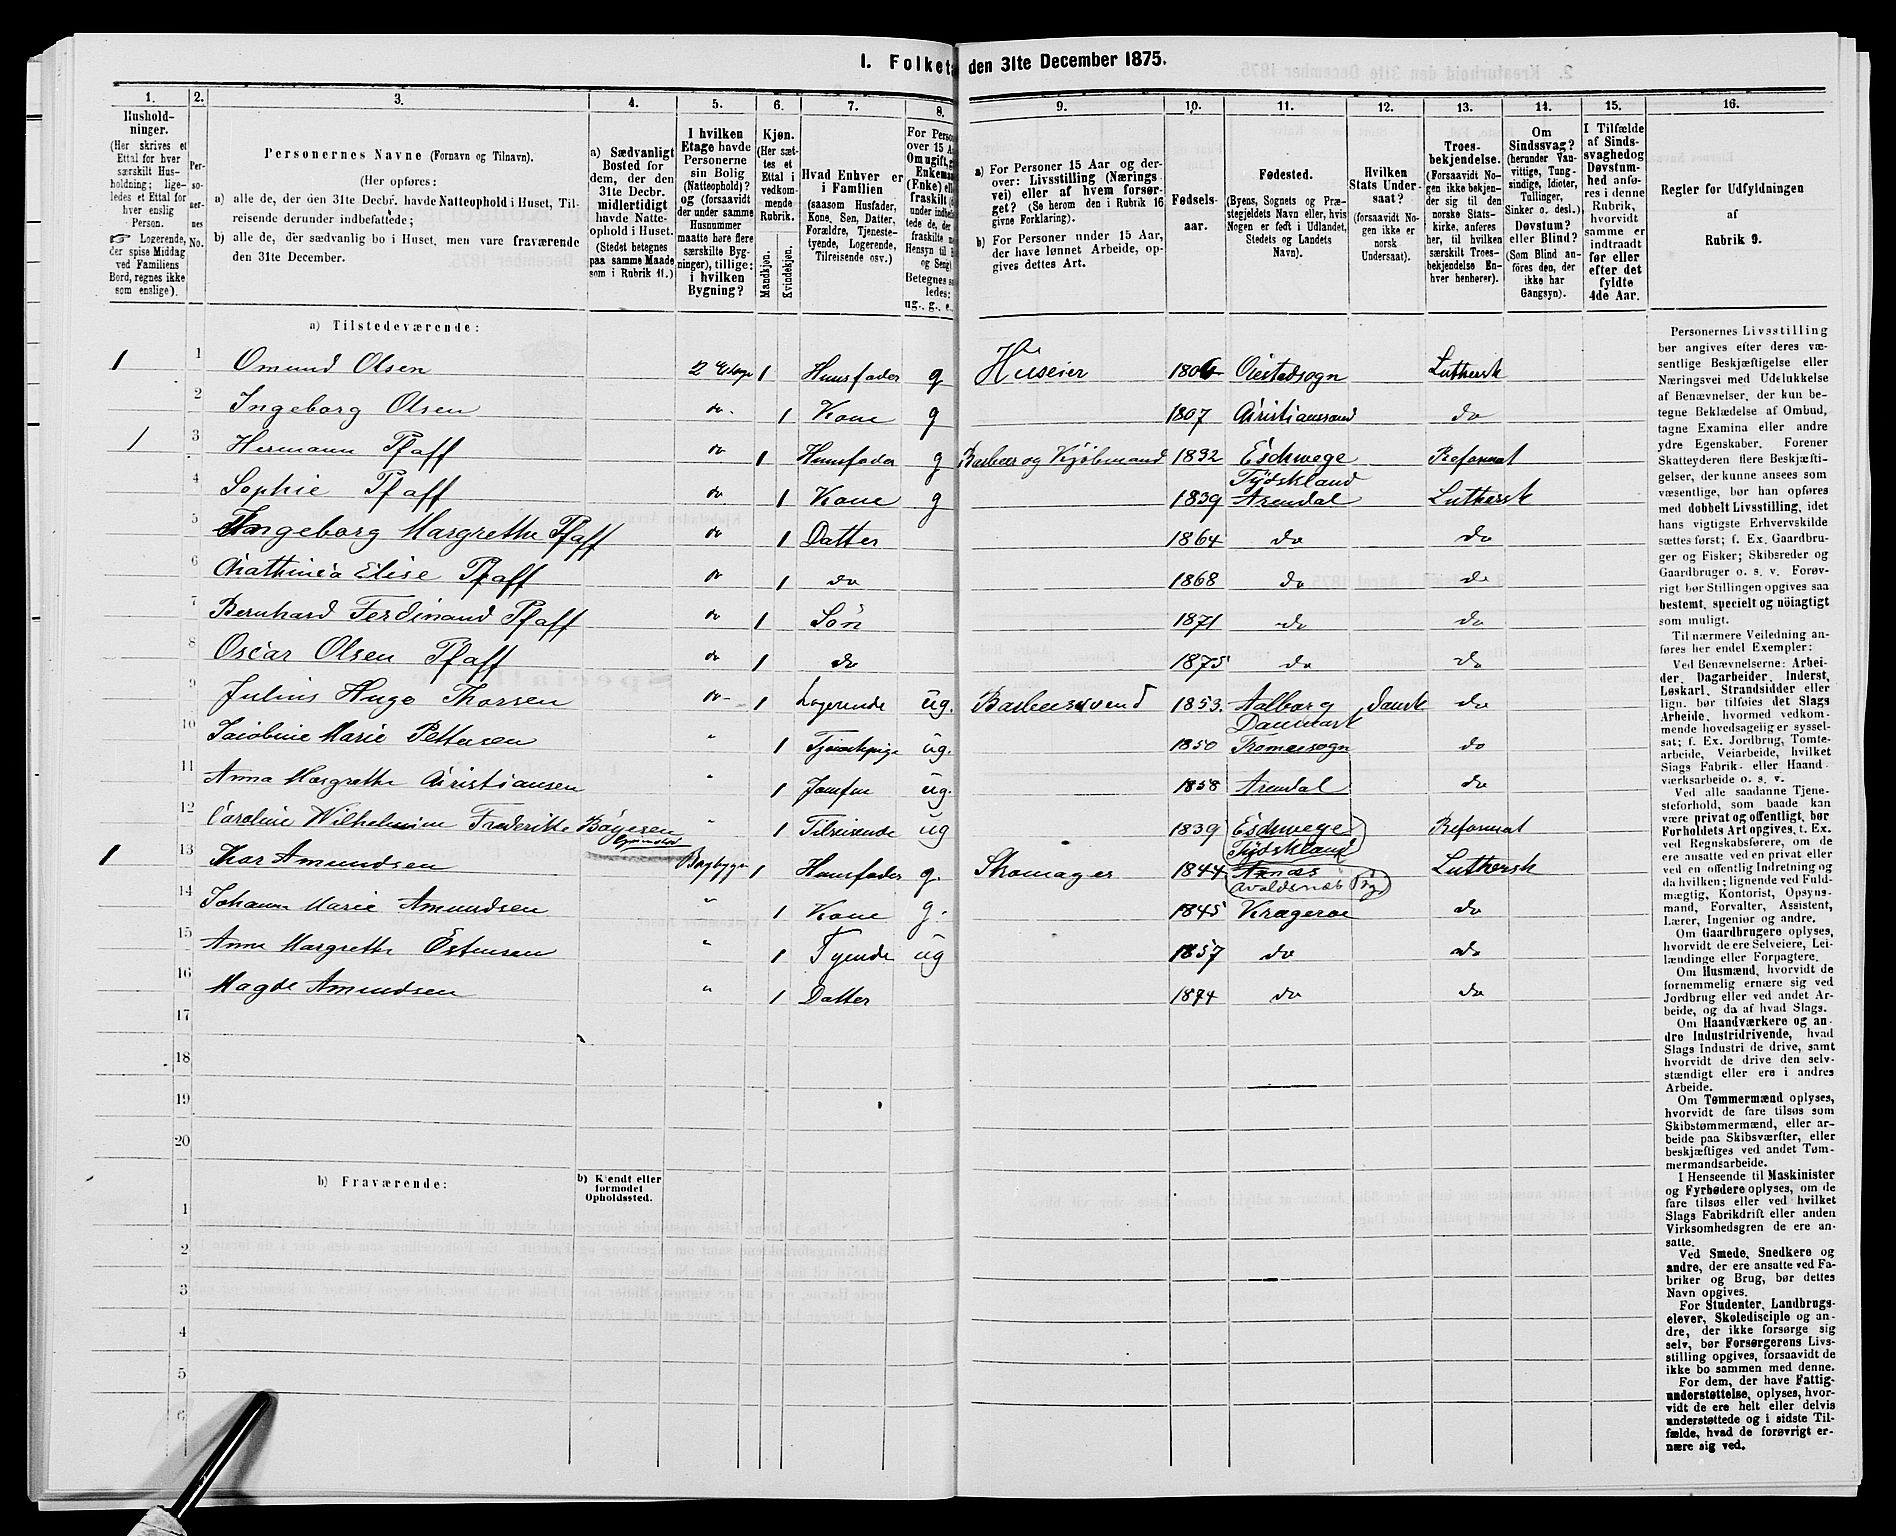 I. Folket den 31te December 1875.
1. 2. 3. 4. 5. 6. 7. 8. 9. 10. 11. 12. 13. 14. 15. 16.
Hushold-
ninger.
(Her skrives et
Ettal for hver
særskilt Hus-
holdning; lige-
ledes et Ettal for
hver enslig
Person.
☞ Logerende,
der spise Middag
ved Familiens
Bord, regnes ikke
som enslige).
Per-
so-
ner-
nes
No.
Personernes Navne (Fornavn og Tilnavn).
(Her opføres:
a) alle de, der den 31te Decbr. havde Natteophold i Huset, Til-
reisende derunder indbefattede;
b) alle de, der sædvanlig bo i Huset, men vare fraværende
den 31te December.
a) Sædvanligt
Bosted for
dem, der den
31te Decbr.
midlertidigt
havde Natte-
ophold i Huset.
(Stedet betegnes
paa samme Maade
som i Rubrik 11.)
I hvilken
Etage havde
Personerne
sin Bolig
(Natteophold)?
og (forsaavidt
der under samme
Husnummer
maatte høre flere
særskilte Byg-
ninger), tillige:
i hvilken
Bygning?
Kjøn.
(Her sæt-
tes et
Ettal i
vedkom-
mende
Rubrik.
Mandkjøn.
Kvindekjøn.
Hvad Enhver er
i Familien
(saasom Husfader,
Kone, Søn, Datter,
Forældre, Tjeneste-
tyende, Logerende,
Tilreisende osv.)
For Perso
over 15 A
Om ugift, g
Enkema
(Enke) el
fraskilt
under indbe
tede de,
fraskilte
Hensyn til
og Seng
Betegnes s
ledes:
ug., g., e.
a) For Personer 15 Aar og der-
over: Livsstilling (Nærings-
vei) eller af hvem forsør-
get? (Se herom den i Rubrik 16
givne Forklaring).
b) For Personer under 15 Aar,
der have lønnet Arbeide, op-
gives dettes Art.
Fødsels-
aar.
Fødested.
(Byens, Sognets og Præ-
stegjeldets Navn eller, hvis
Nogen er født i Udlandet,
Stedets og Landets
Navn).
Hvilken
Stats Under-
saat?
(forsaavidt No-
gen ikke er
norsk
Undersaat).
Troes-
bekjendelse.
(Forsaavidt No-
gen ikke bekjen-
der sig til den
norske Stats-
kirke, anføres
her, til hvilken
særskilt Troes-
bekjendelse En-
hver henhører).
Om
Sindssvag?
(herunder Van-
vittige, Tung-
sindige, Idioter,
Tullinger,
Sinker o. desl.)
Døvstum?
eller Blind?
(Som Blind an-
føres den, der
ikke har
Gangsyn).
I Tilfælde
af Sinds-
svaghed og
Døvstum-
hed anfø-
res i denne
Rubrik,
hvorvidt
samme er
indtraadt
før eller
efter det
fyldte
4de Aar.
Regler for Udfyldningen
af
Rubrik 9.
a) Tilstedeværende:
1 1 Omund Olsen 2 Etage 1 Huusfader g Huseier 1806 Oiestadsogn Luthersk
2 Ingeborg Olsen do 1 Kone g 1807 Christianssand do
1 3 Hermann Pfaff do 1 Huusfader g Barbeer og Kjøbmand 1832 Eschwege Tÿdskland Reformat
4 Sophie Pfaff do 1 Kone g 1839 Arendal Luthersk
5 Ingeborg Margrethe Pfaff do 1 Datter 1864 do do
6 Chathinca Elise Pfaff do 1 do 1868 do do
7 Bernhard Ferdinand Pfaff do 1 Søn 1871 do do
8 Oscar Olsen Pfaff do 1 do 1875 do do
9 Julius Hugo Thorsen do 1 Logerende ug. Barbeersvend 1853. Aalborg Danmark Dansk do
10 Jacobine Marie Pettersen " 1 ug. 1850 Tromøesogn do
11 Anna Margrethe Christiansen " 1 Jomfru ug. 1858 Arendal do
12 Caroline Wilhelmine Frederikke Bøyesen Grimstad " 1 Tilreisende ug 1839 Eschwege Tÿdskland Reformat
1 13 Thor Amundsen Bagbygn 1 Huusfader g. Skomager 1844 Avaldsnæs Luthersk
14 Johanne Marie Amundsen " 1 Kone g. 1845 Kragerøe do
15 Anne Margrethe Estensen " 1 Tyende ug 1857 do do
16 Magde Amundsen " 1 Datter 1874 do do
17
18
19
20
b) Fraværende:
b) Kjendt eller
formodet
Opholdssted.
1
2
3
4
5
6
Personernes Livsstilling
bør angives efter deres væ-
sentlige Beskjæftigelse eller
Næringsvei med Udelukkelse
af Benævnelser, der kun be-
tegne Beklædelse af Ombud,
tagne Examina eller andre
ydre Egenskaber. Forener
Skatteyderen flere Beskjæfti-
gelser, der kunne ansees som
væsentlige, bør han opføres
med dobbelt Livsstilling, idet
hans vigtigste Erhvervskilde
sættes først; f. Ex. Gaardbru-
ger og Fisker; Skibsreder og
Gaardbruger o. s. v. Forøv-
rigt bør Stillingen opgives saa
bestemt, specielt og nöiagtigt
som muligt.
Til nærmere Veiledning an-
føres her endel Exempler:
Ved Benævnelserne: Arbei-
der, Dagarbeider, Inderst,
Løskarl, Strandsidder eller
lign. bør tilføies det Slags
Arbeide, hvormed vedkom-
mende hovedsagelig er syssel-
sat; f. Ex. Jordbrug, Tomte-
arbeide, Veiarbeide, hvilket
Slags Fabrik- eller Haand-
værksarbeide o. s. v.
Ved alle saadanne Tjene-
steforhold, som baade kan
være privat og offentlig, bør
Forholdets Art opgives, t. Ex.
ved Regnskabsførere, om de
ere ansatte ved en privat eller
ved en offentlig Indretning og
da hvilken; lignende ved Fuld-
mægtig, Kontorist, Opsyns-
mand, Forvalter, Assistent,
Lærer, Ingeniør og andre.
Om Gaardbrugere oplyses,
hvorvidt de ere Selveiere, Lei-
lændinge eller Forpagtere.
Om Husmænd, hvorvidt de
fornemmelig ernære sig ved
Jordbrug eller ved andet Ar-
beide, og da af hvad Slags.
Om Haandværkere og an-
dre Industridrivende, hvad
Slags Industri de drive, samt
hvorvidt de drive den selv-
stændigt eller ere i andres
Arbeide.
Om Tømmermænd oplyses,
hvorvidt de fare tilsøs som
Skibstømmermænd, eller ar-
beide paa Skibsværfter, eller
beskjæftiges ved andet Tøm-
mermandsarbeide.
I Henseende til Maskinister
og Fyrbødere oplyses, om de
fare tilsøs eller ved hvilket
Slags Fabrikdrift eller anden
Virksomhedsgren de ere an-
satte.
Ved Smede, Snedkere og
andre, der ere ansatte ved Fa-
briker og Brug, bør dettes
Navn opgives.
For Studenter, Landbrugs-
elever, Skoledisciple og an-
dre, der ikke forsørge sig
selv, bør Forsørgerens Livs-
stilling opgives, forsaavidt de
ikke bo sammen med denne.
For dem, der have Fattig-
understøttelse, oplyses, hvor-
vidt de ere helt eller delvis
understøttede og i sidste Til-
fælde, hvad de forøvrigt er-
nære sig ved.